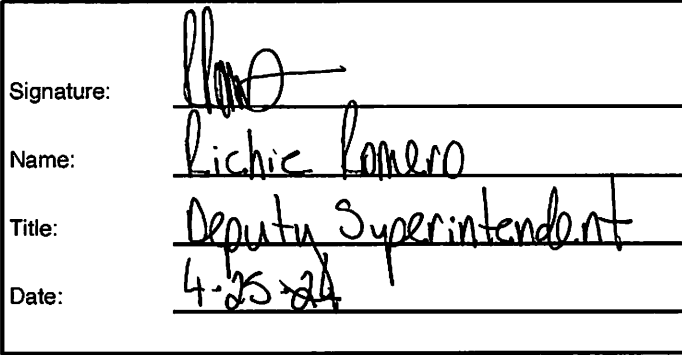 Signature:
Name: Richie Romero
Title: Deputy Superintendent
Date: 4-25-24